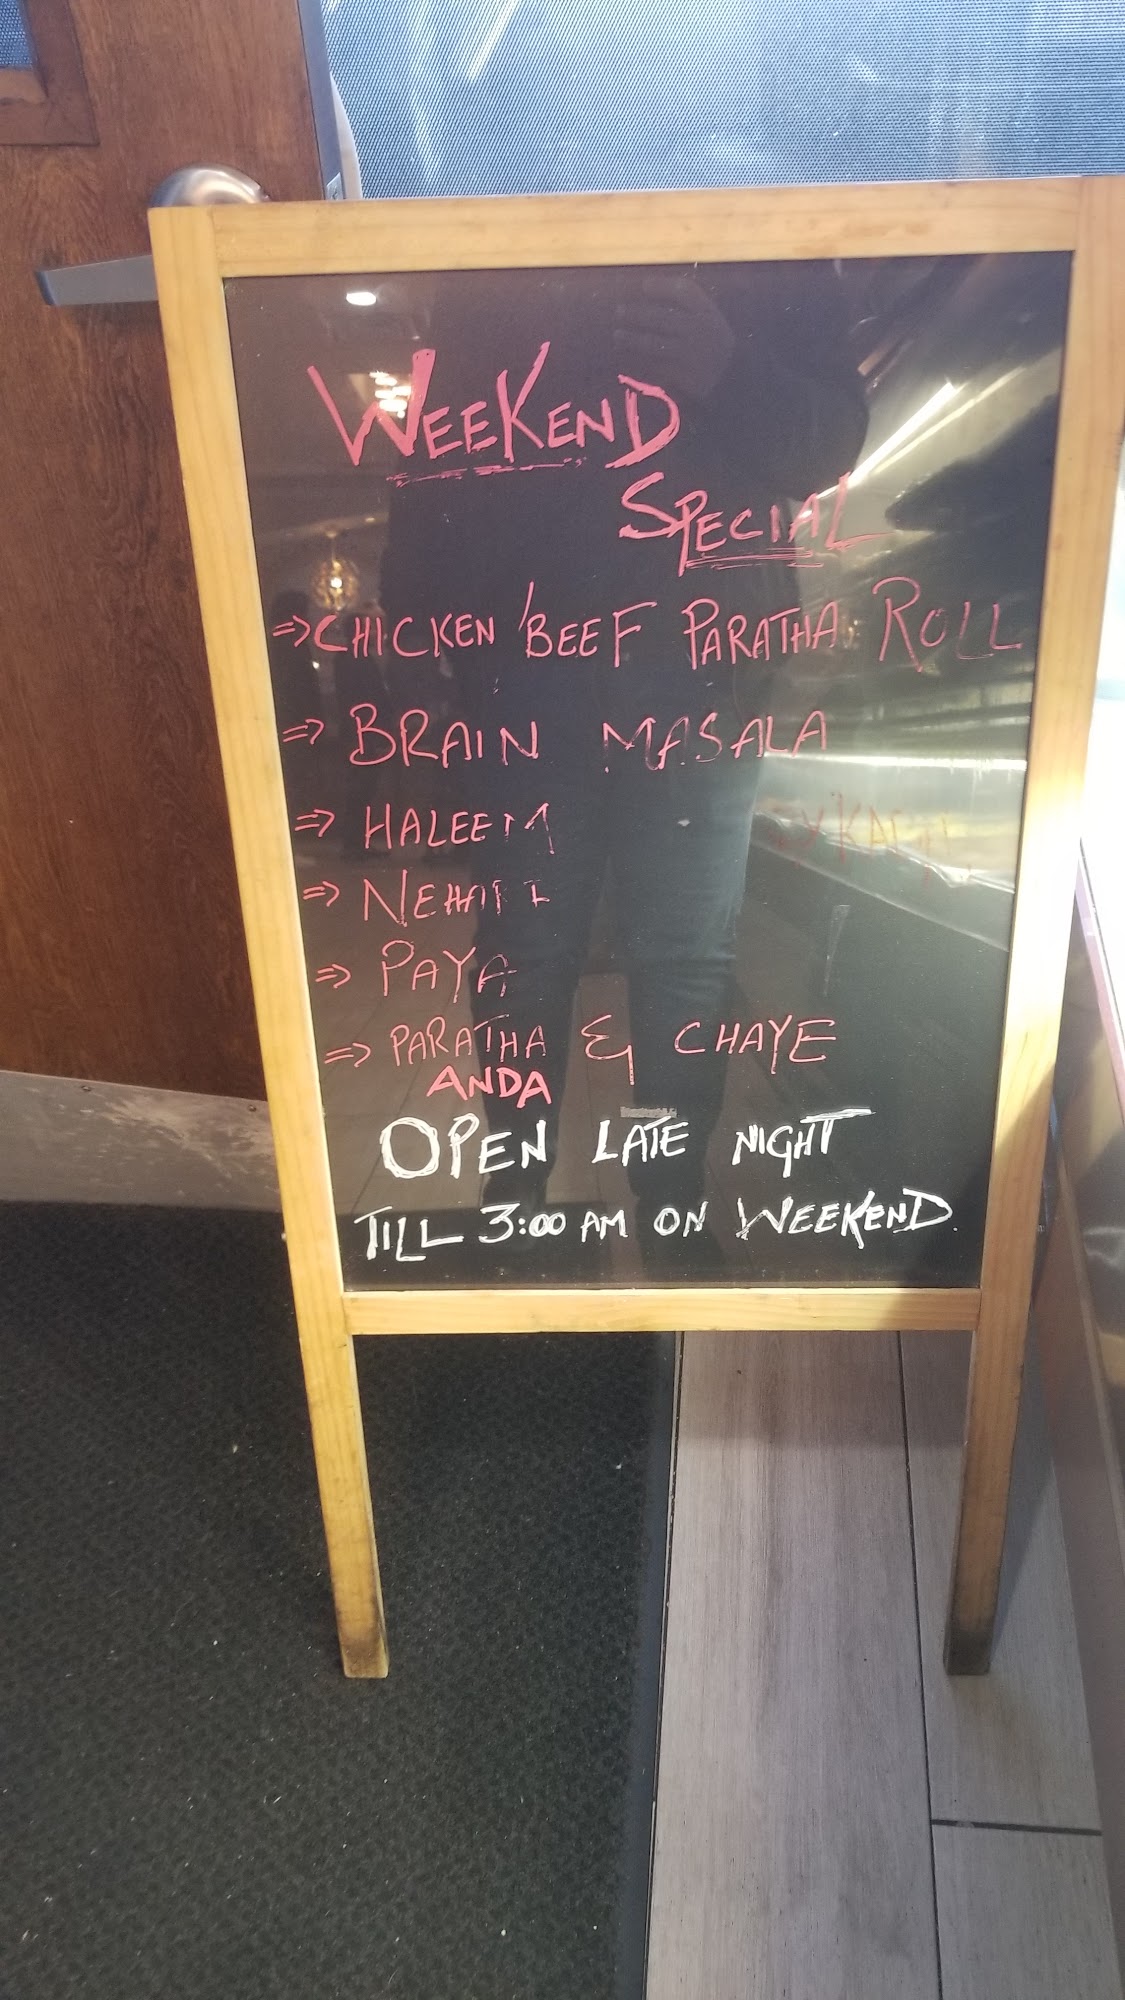 WEEKEND
SPECIAL
⇒ CHICKEN / BEEF PARATHA ROLL
⇒ BRAIN MASALA
⇒ HALEEM
⇒ NEHARI
⇒ PAYA
⇒ PARATHA & CHAYE
ANDA
OPEN LATE NIGHT
TILL 3:00 AM ON WEEKEND.